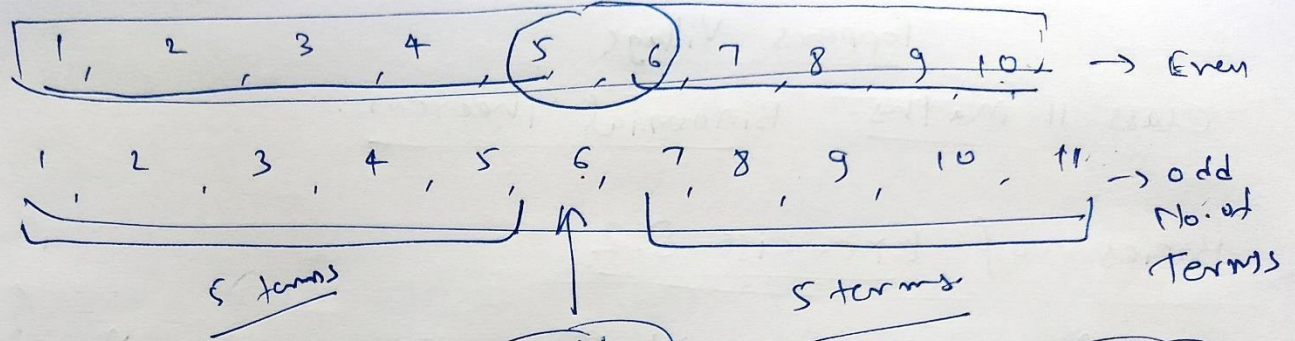 1, 2, 3, 4, 5, 6, 7, 8, 9, 10, → Even
1, 2, 3, 4, 5, 6, 7, 8, 9, 10, 11 → odd
No. of
Terms
5 terms
5 terms